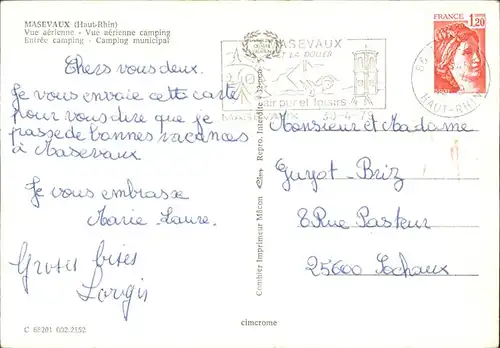 MASEVAUX (Haut-Rhin)
Vue aérienne - Vue aérienne camping
Entrée camping - Camping municipal
Chers vous deux.
Je vous envoie cette carte
pour vous dire que je
passe de bonnes vacances
à Masevaux
Je vous embrasse
Marie Laure.
Gros bises
C 68201 002.2152
Combier Imprimeur Mâcon
Repro. Interdite
cimcrome
MASEVAUX
ET LA DOLLER
air pur et loisirs
MASEVAUX
HAUT-RHIN
68
1,20
Monsieur et Madame
Guyot-Briz
8 Rue Pasteur
25600 Sochaux